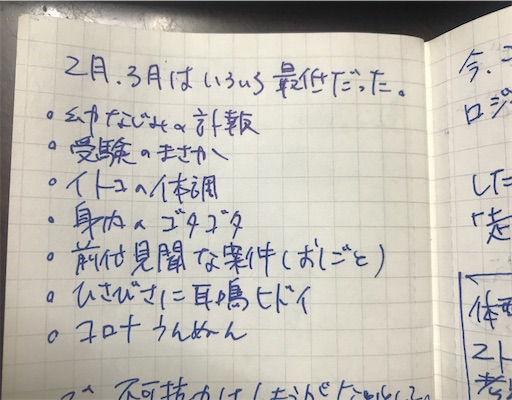 2月、3月はいろいろ最低だった。
幼なじみの訃報
受験のまさか
イトコの体調
身内のゴタゴタ
前代見聞な案件(おしごと)
ひさびさに耳鳴ヒドイ
コロナうんぬん
不可抗力は
今、
ロジ
した
「走
体
スト
考